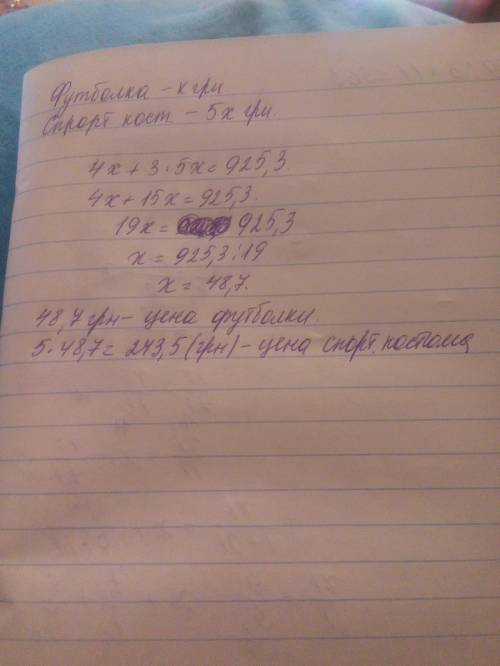 Футболка – х грн
Спрорт кост – 5х грн.
4х + 3·5х = 925,3.
4х + 15х = 925,3.
19х = 925,3
х = 925,3:19
х = 48,7.
48,7 грн – цена футболки.
5·48,7 = 243,5 (грн) – цена спорт. костюма